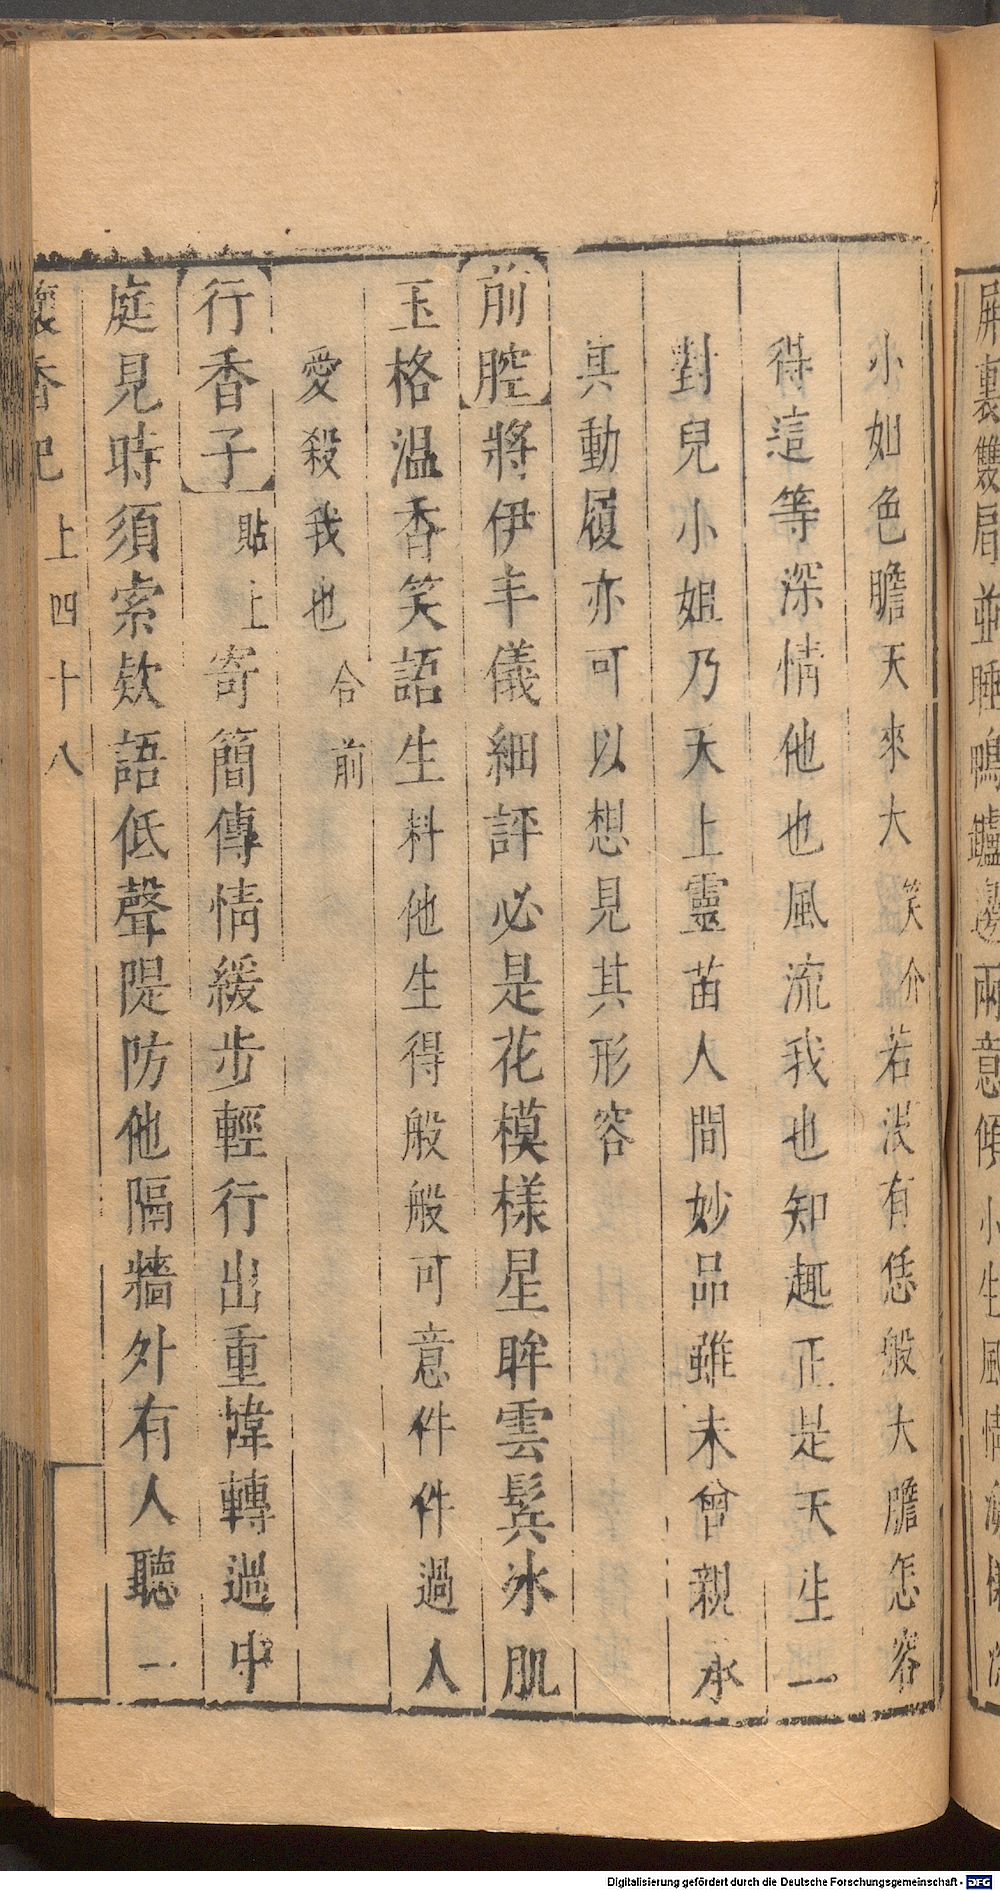 屏裏雙眉並睡鴨爐邊兩意傾小生風情
小如色膽天來大笑介若没有恁般大膽怎容
得這等深情他也風流我也知趣正是天生一
對兒小姐乃天上靈苗人間妙品雖未曾親承
其動履亦可以想見其形容
前腔將伊丰儀細評必是花模樣星眸雲鬂氷肌
玉格温香笑語生料他生得般般可意件件過人
愛殺我也合前
行香子貼上寄簡傳情緩步輕行出重幃轉過中
庭見時須索欵語低聲隄防他隔牆外有人聽一
懷香記 上四十八
Digitalisierung gefördert durch die Deutsche Forschungsgemeinschaft - DFG